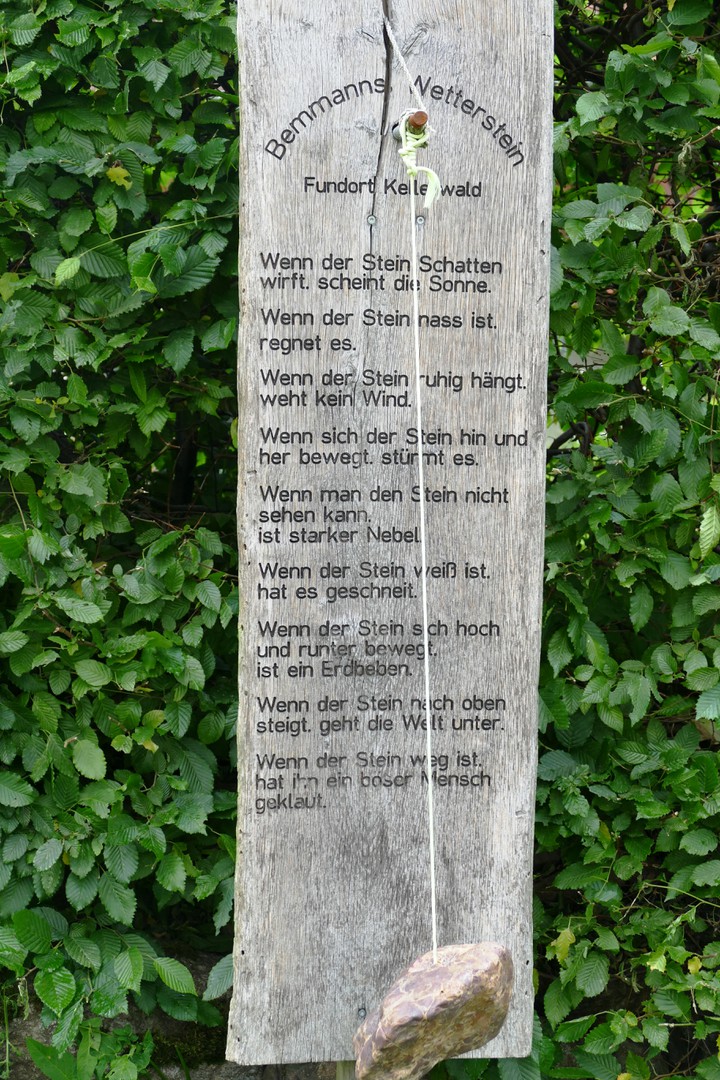 Bemmanns Wetterstein
Fundort Kellerwald
Wenn der Stein Schatten
wirft. scheint die Sonne.
Wenn der Stein nass ist.
regnet es.
Wenn der Stein ruhig hängt.
weht kein Wind.
Wenn sich der Stein hin und
her bewegt. stürmt es.
Wenn man den Stein nicht
sehen kann.
ist starker Nebel.
Wenn der Stein weiß ist.
hat es geschneit.
Wenn der Stein sich hoch
und runter bewegt.
ist ein Erdbeben.
Wenn der Stein nach oben
steigt. geht die Welt unter.
Wenn der Stein weg ist.
hat ihn ein böser Mensch
geklaut.